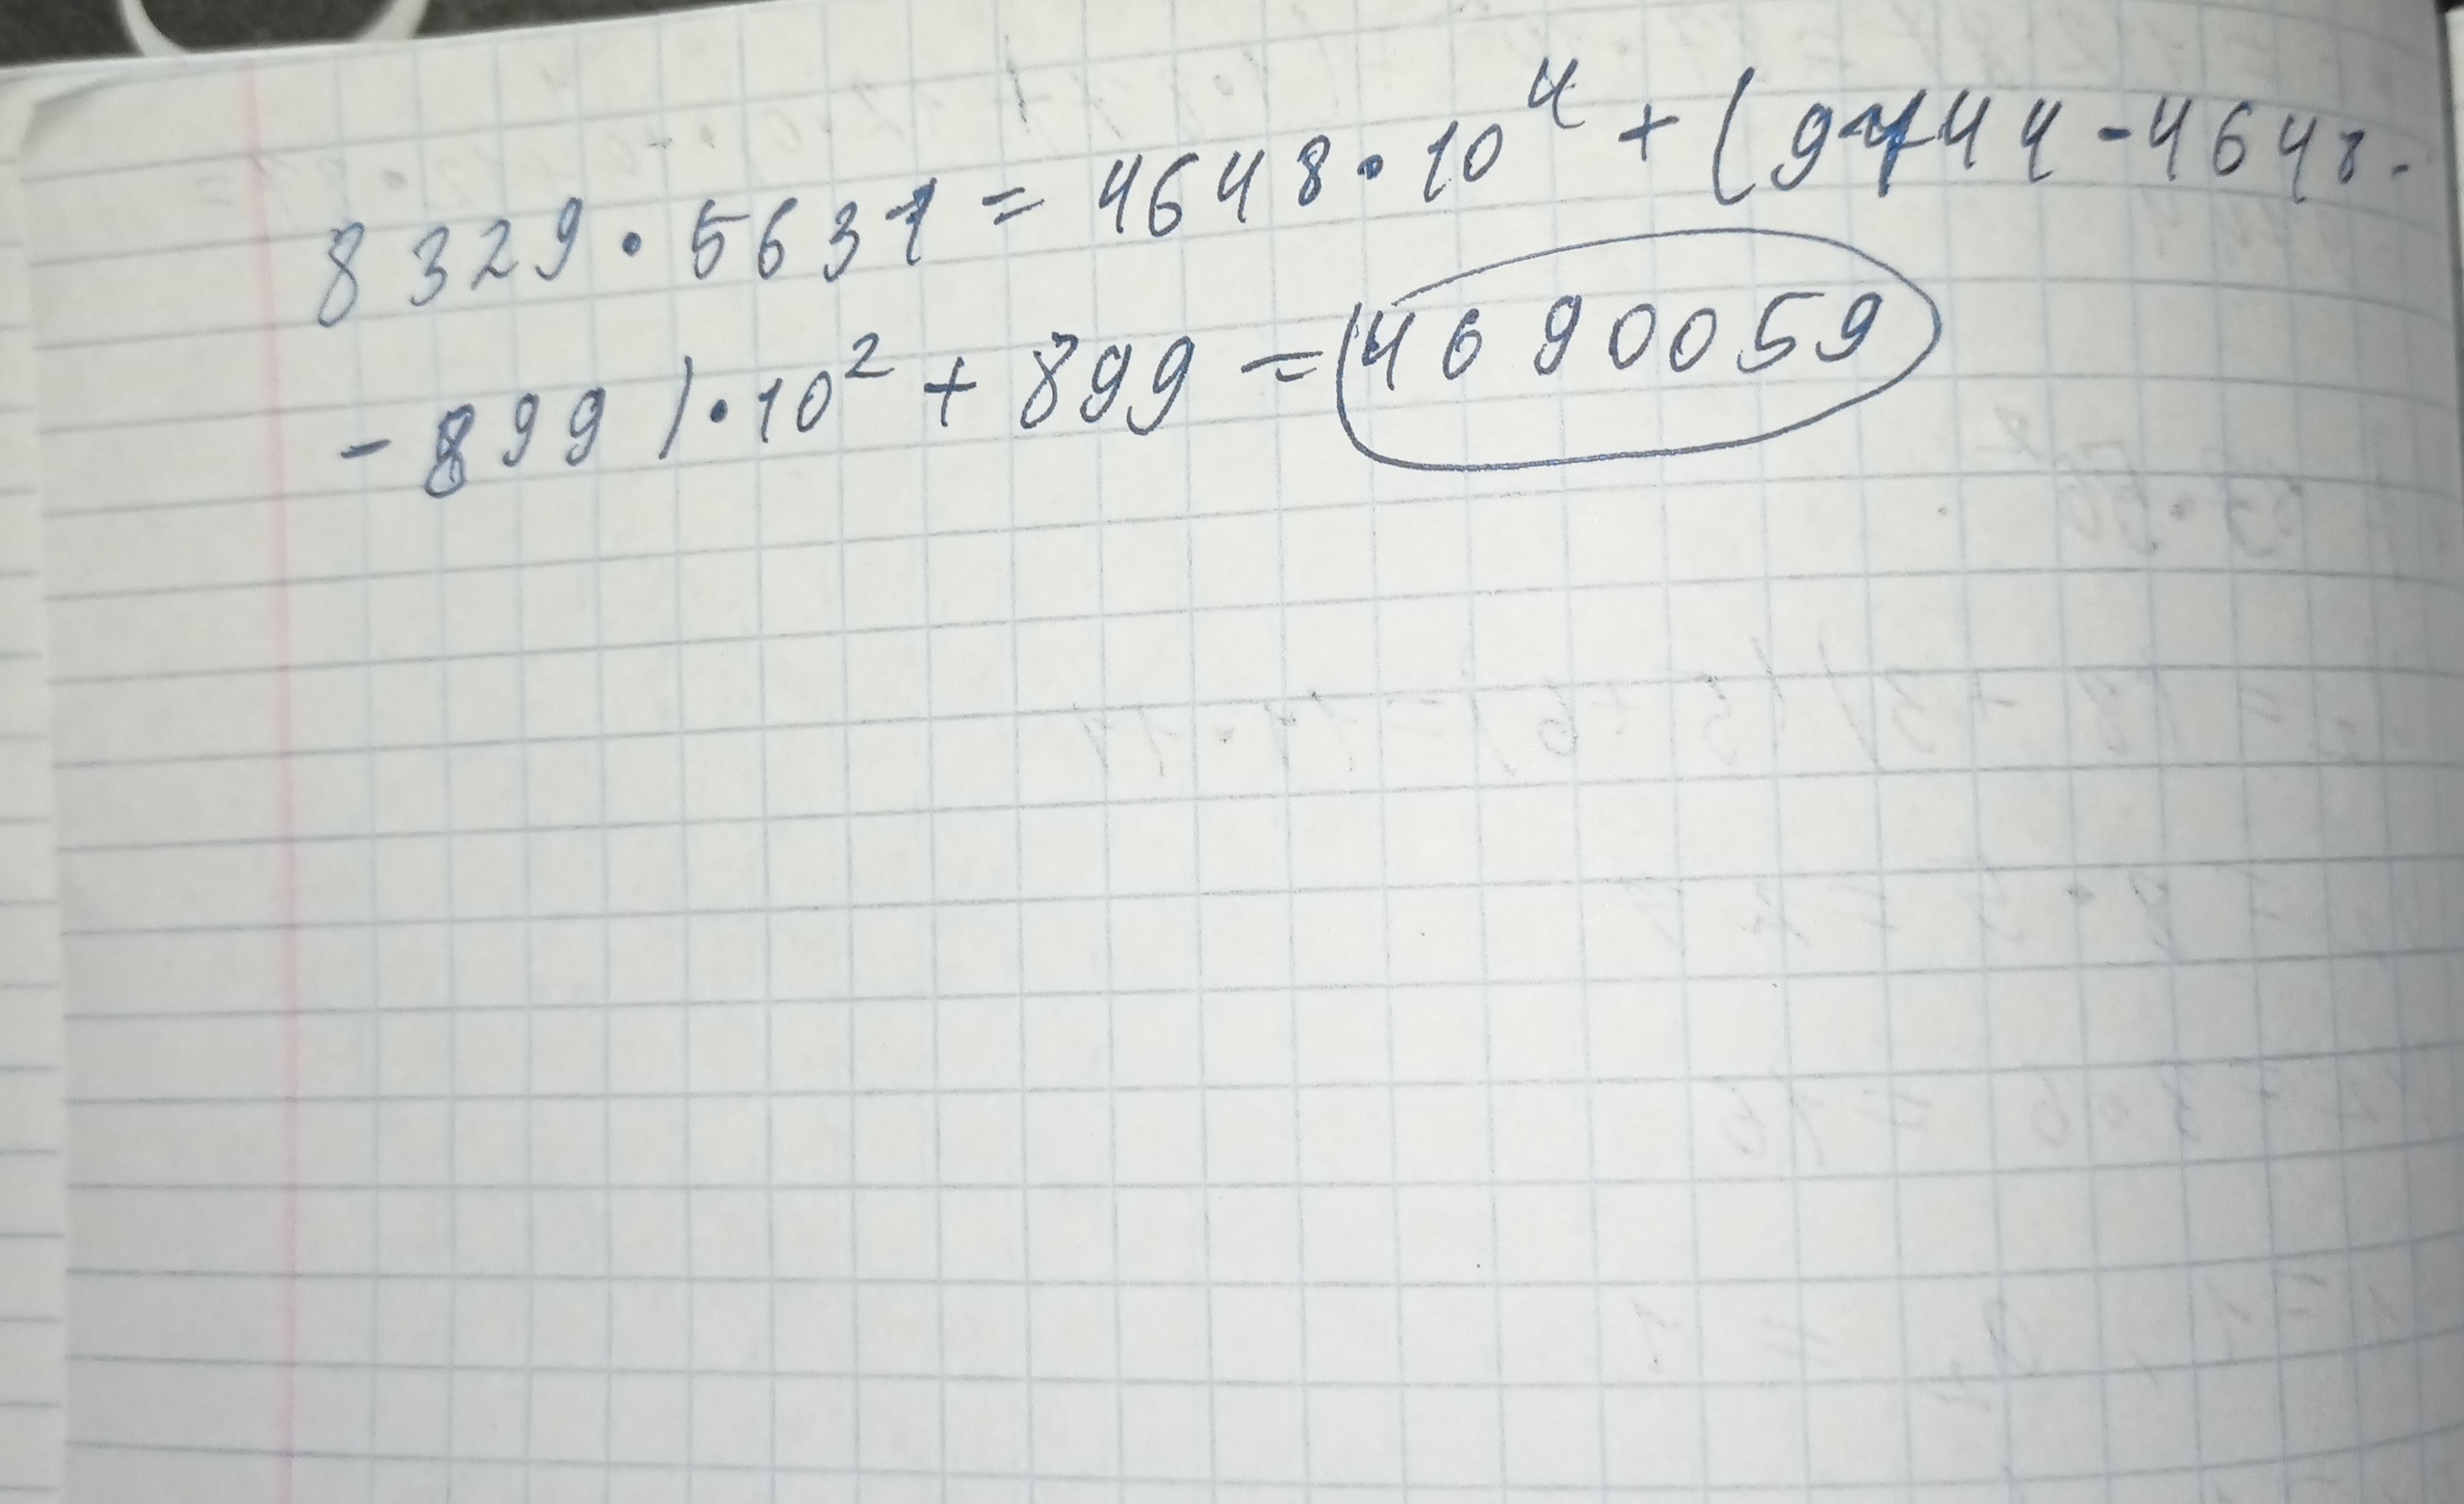 8329 · 5631 = 4648 · 10⁴ + (9744 - 4648 -
- 899) · 10² + 899 = 4690059